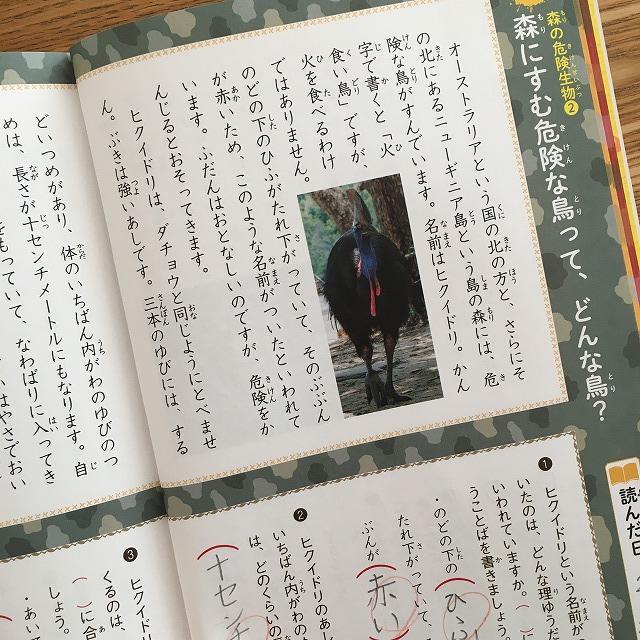 森の危険生物❷
森にすむ危険な鳥って、どんな鳥？
オーストラリアという国の北の方と、さらにそ
の北にあるニューギニア島という島の森には、危
険な鳥がすんでいます。名前はヒクイドリ。かん
字で書くと「火
食い鳥」ですが、
火を食べるわけ
ではありません。
のどの下のひふがたれ下がっていて、そのぶぶん
が赤いため、このような名前がついたといわれて
います。ふだんはおとなしいのですが、危険をか
んじるとおそってきます。
ヒクイドリは、ダチョウと同じようにとべませ
ん。ぶきは強いあしです。三本のゆびには、する
どいつめがあり、体のいちばん内がわのゆびのつ
めは、長さが十センチメートルにもなります。自
をもっていて、なわばりに入ってき
はやさでおい
読んだ日
❶
ヒクイドリという名前が
いたのは、どんな理ゆうだ
いわれていますか。（ ）
うことばを書きましょう
・のどの下の（ひふ
たれ下がっていて、
ぶんが（赤い
❷
ヒクイドリのあし
いちばん内がわの
は、どのくらいの
（十センチ
❸
ヒクイドリ
くるのは、
（ ）に合
しょう。
・あい